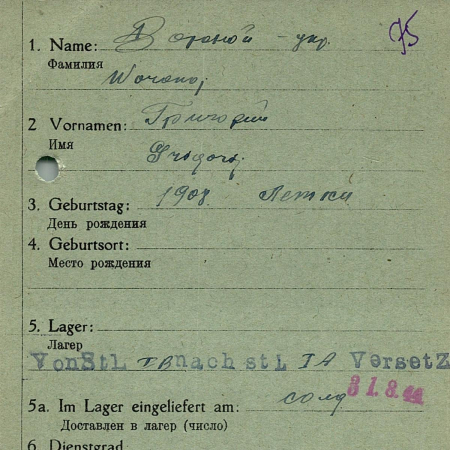 75
1. Name: Вороной - укр.
Фамилия
Woronoj
2 Vornamen: Григорий
Имя
Grigorij
3. Geburtstag: 1908
День рождения
4. Geburtsort:
Место рождения
5. Lager:
Лагерь
Von Stl IB nach stl IA Versetz
31.8.44
5a. Im Lager eingeliefert am: солд
Доставлен в лагерь (число)
6. Dienstgrad